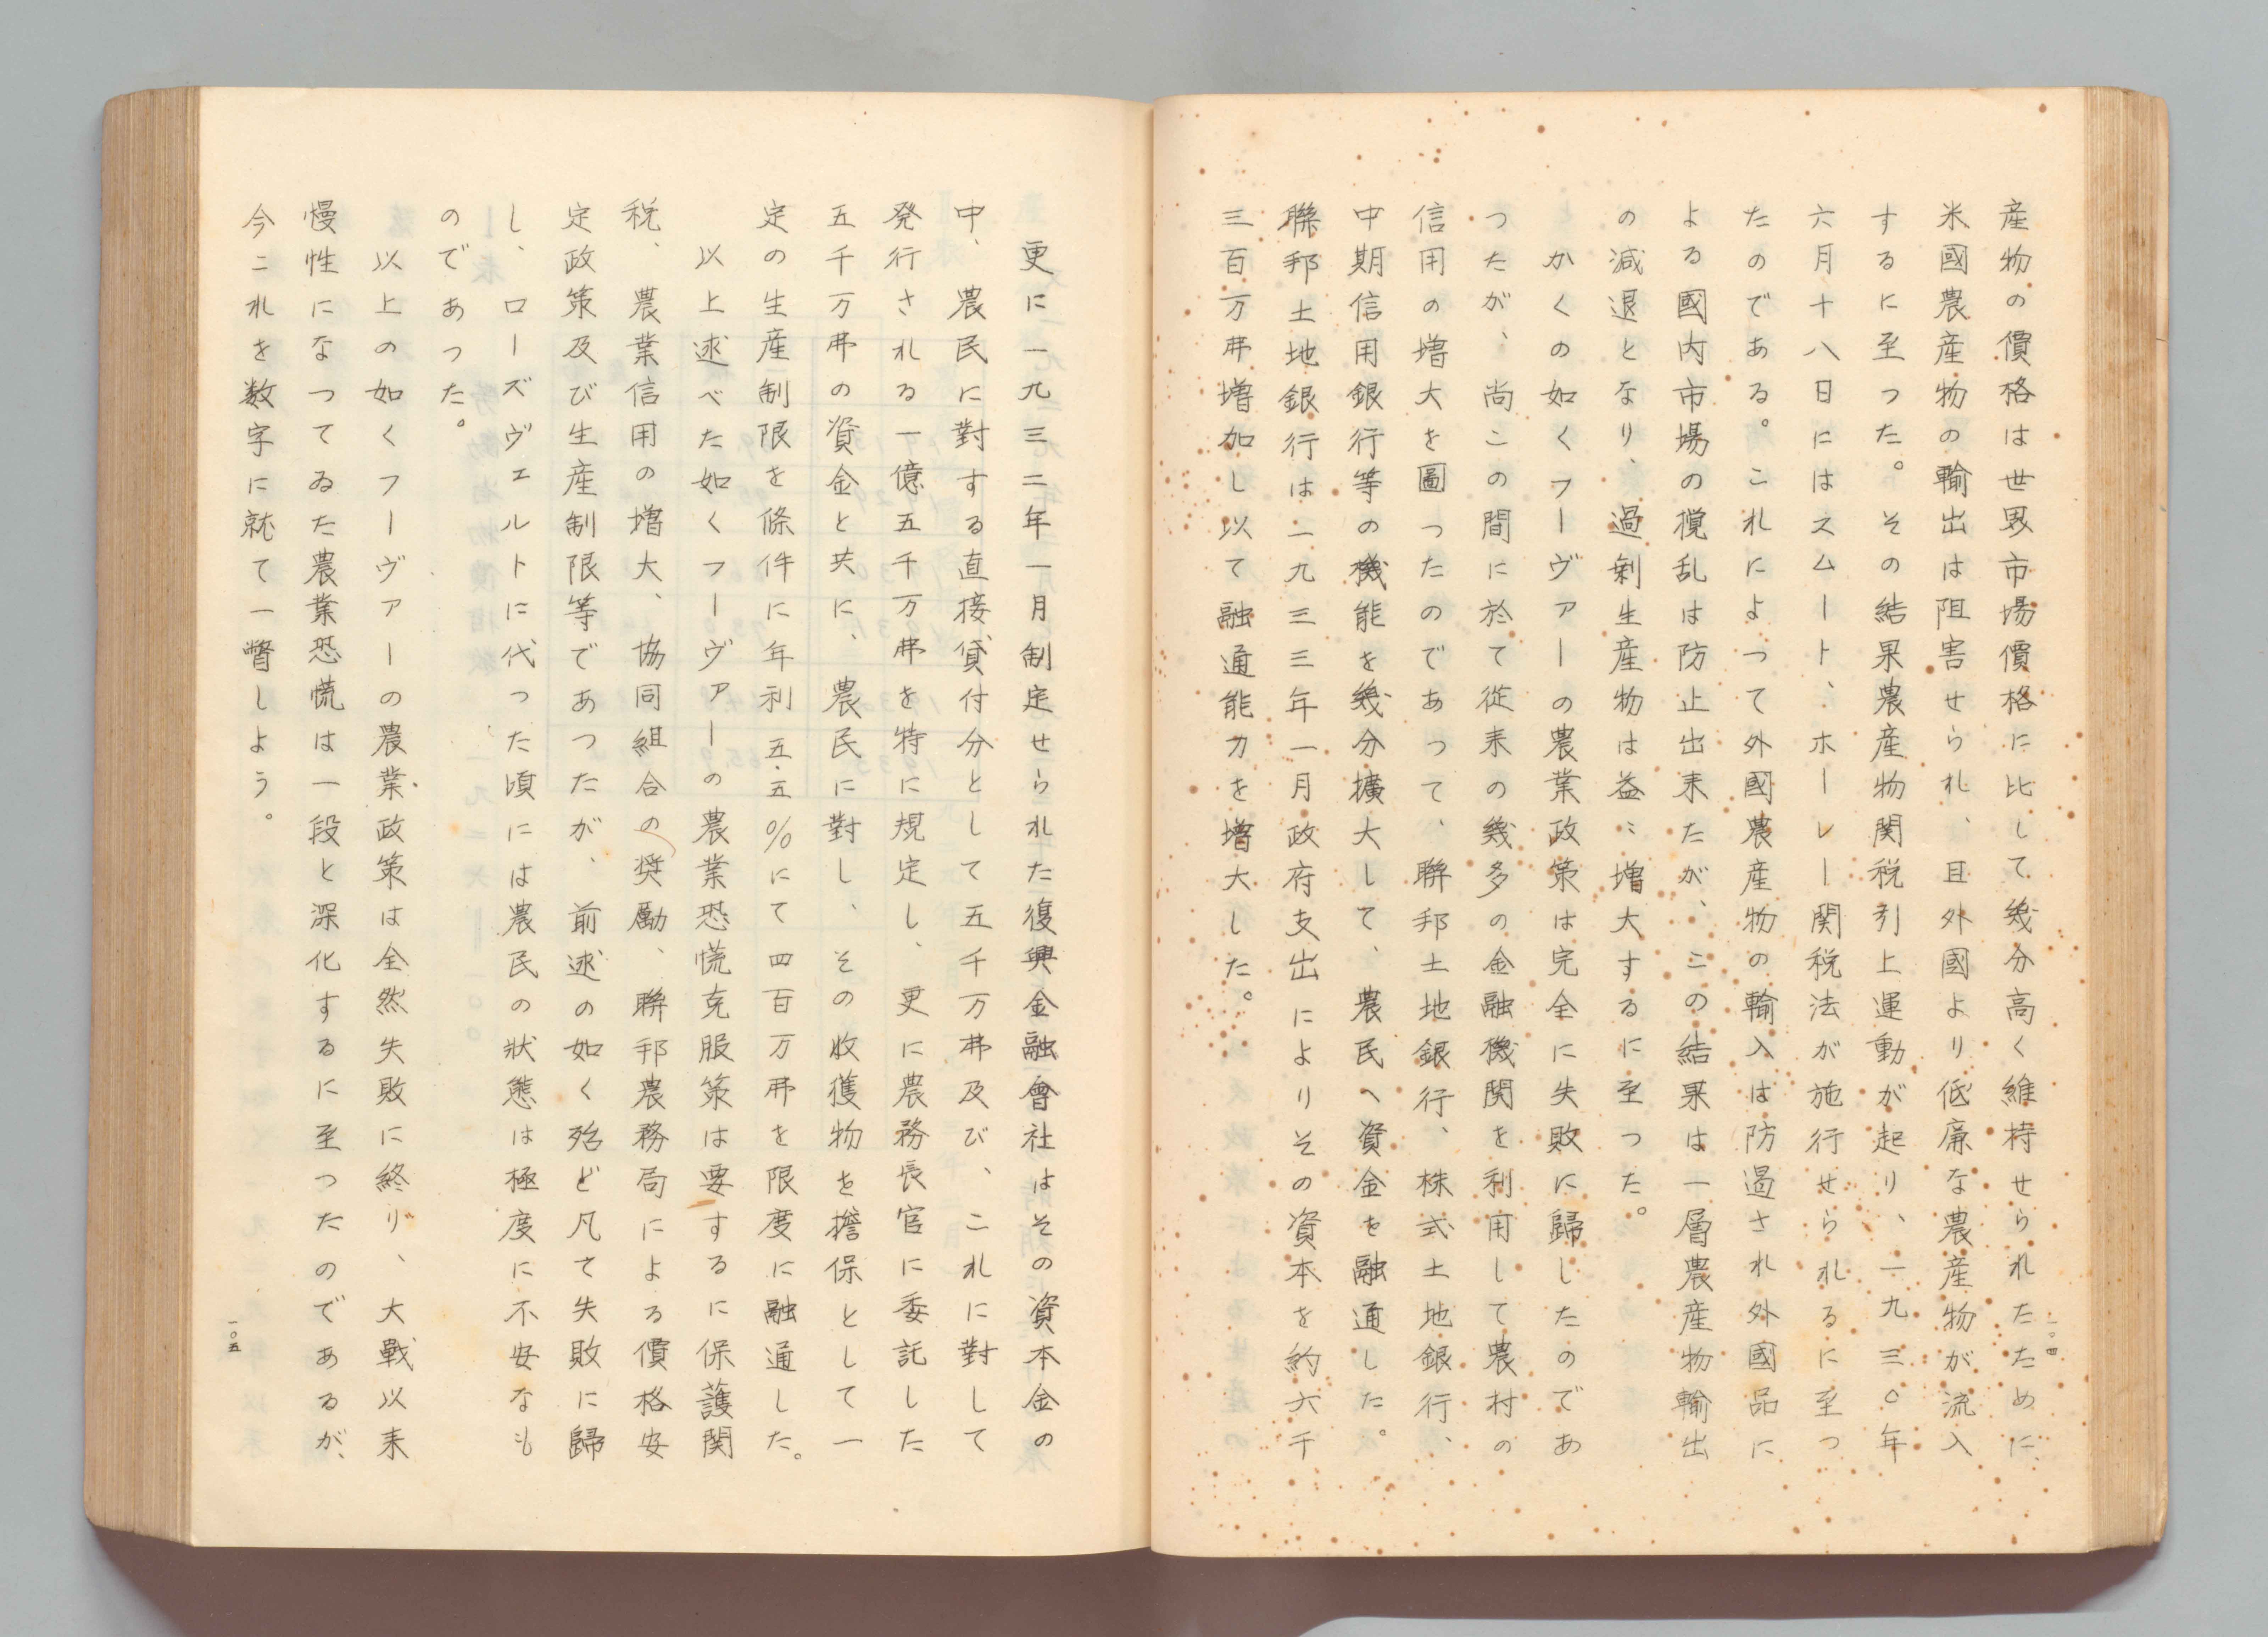 産物の價格は世界市場價格に比して幾分高く維持せられたために
米國農産物の輸出は阻害せられ、且外國より低廉な農産物が流入
するに至つた。その結果農産物関税引上運動が起り、一九三〇年
六月十八日にはスムート、ホーレー関税法が施行せられるに至つ
たのである。これによつて外國農産物の輸入は防遏され外國品に
よる國内市場の攪乱は防止出来たが、この結果は一層農産物輸出
の減退となり、過剰生産物は益〻増大するに至つた。
かくの如くフーヴァーの農業政策は完全に失敗に歸したのであ
つたが、尚この間に於て従来の幾多の金融機関を利用して農村の
信用の増大を圖つたのであつて、聯邦土地銀行、株式土地銀行、
中期信用銀行等の機能を幾分擴大して、農民へ資金を融通した。
聯邦土地銀行は一九三三年一月政府支出によりその資本を約六千
三百万弗増加し以て融通能力を増大した。
一〇四
更に一九三二年一月制定せられた復興金融會社はその資本金の
中、農民に對する直接貸付分として五千万弗及び、これに對して
発行される一億五千万弗を特に規定し、更に農務長官に委託した
五千万弗の資金と共に、農民に對し、その收獲物を擔保として一
定の生産制限を條件に年利五・五%にて四百万弗を限度に融通した。
以上述べた如くフーヴァーの農業恐慌克服策は要するに保護関
税、農業信用の増大、協同組合の奨勵、聯邦農務局による價格安
定政策及び生産制限等であつたが、前述の如く殆ど凡て失敗に歸
し、ローズヴェルトに代つた頃には農民の狀態は極度に不安なも
のであつた。
以上の如くフーヴァーの農業政策は全然失敗に終り、大戰以来
慢性になつてゐた農業恐慌は一段と深化するに至つたのであるが、
今これを数字に就て一瞥しよう。
一〇五